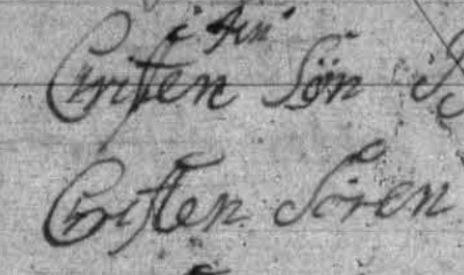 Cristen Søn
Cristen Sören